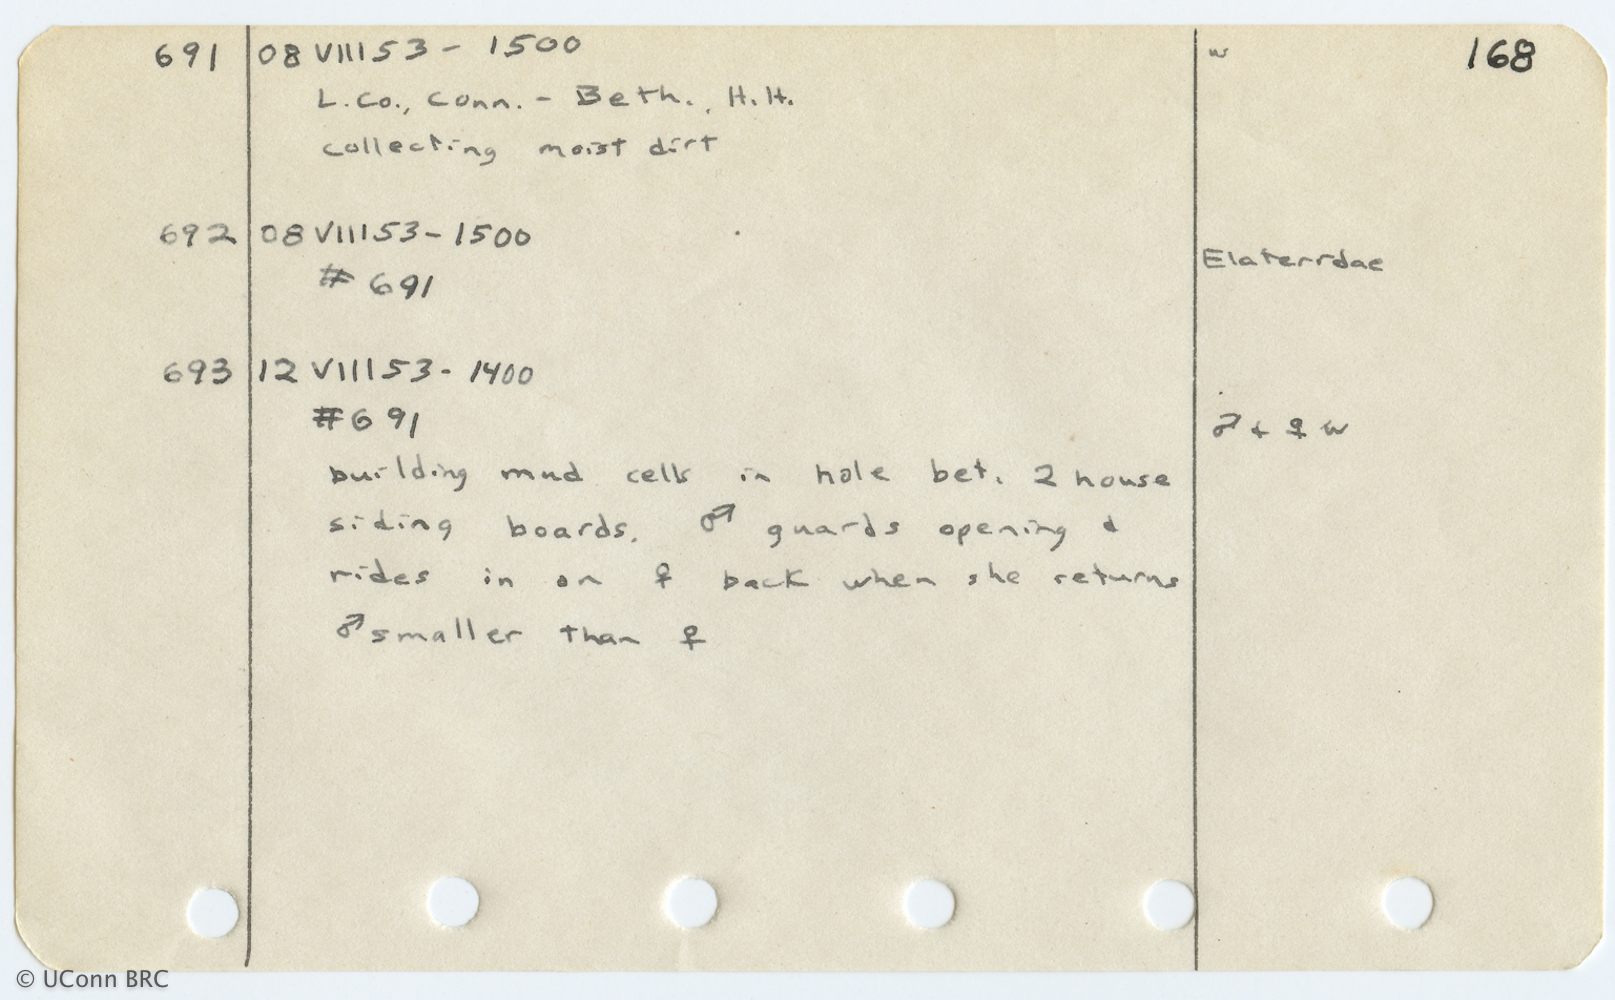 168
691 08 VIII 53 - 1500 w
L.Co., Conn. - Beth., H.H.
collecting moist dirt
692 08 VIII 53 - 1500
# 691 Elaterrdae
693 12 VIII 53 - 1400
# 691 ♂ + ♀ w
building mud cells in hole bet. 2 house
siding boards. ♂ guards opening &
rides in on ♀ back when she returns
♂ smaller than ♀
© UConn BRC